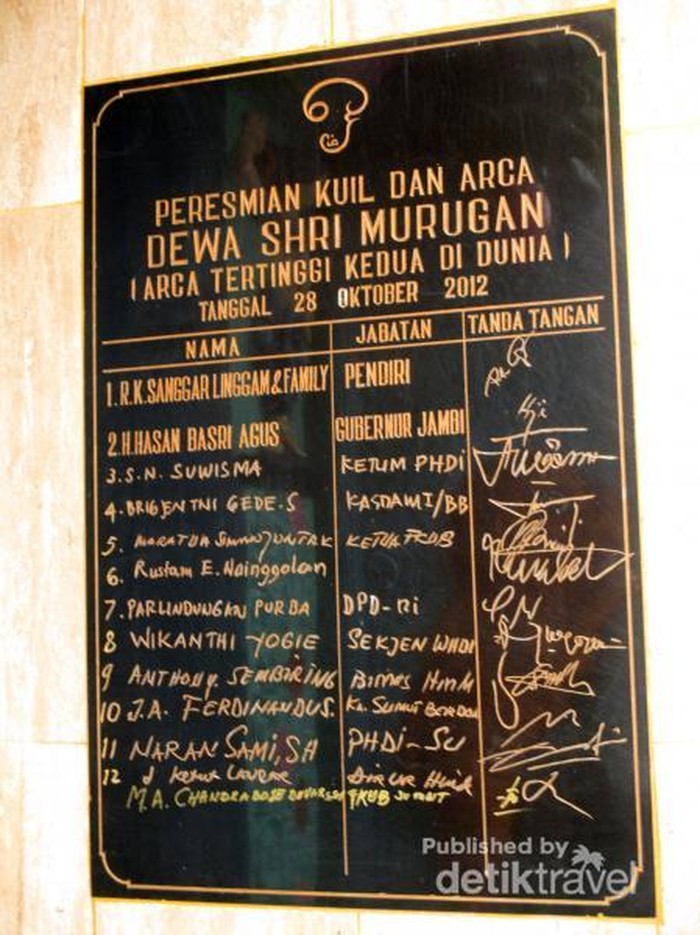 PERESMIAN KUIL DAN ARCA
DEWA SHRI MURUGAN
(ARCA TERTINGGI KEDUA DI DUNIA)
TANGGAL 28 OKTOBER 2012
NAMA JABATAN TANDA TANGAN
1. R.K. SANGGAR LINGGAM & FAMILY PENDIRI
2. H. HASAN BASRI AGUS GUBERNUR JAMBI
3. S.N. SUWISMA KETUM PHDI
4. BRIGJEN TNI GEDE.S KASDAM I/BB
5. KETUA
6. Rustam E. Nainggolan
7. PARLINDUNGAN PURBA DPD-RI
8 WIKANTHI YOGIE SEKJEN WHDI
9 ANTHONY. SEMBIRING
10 J.A. FERDINANDUS.
11 NARAN SAMI, SH PHDI-SU
12
M.A. CHANDRABOSE FKUB SUMUT
Published by
detiktravel